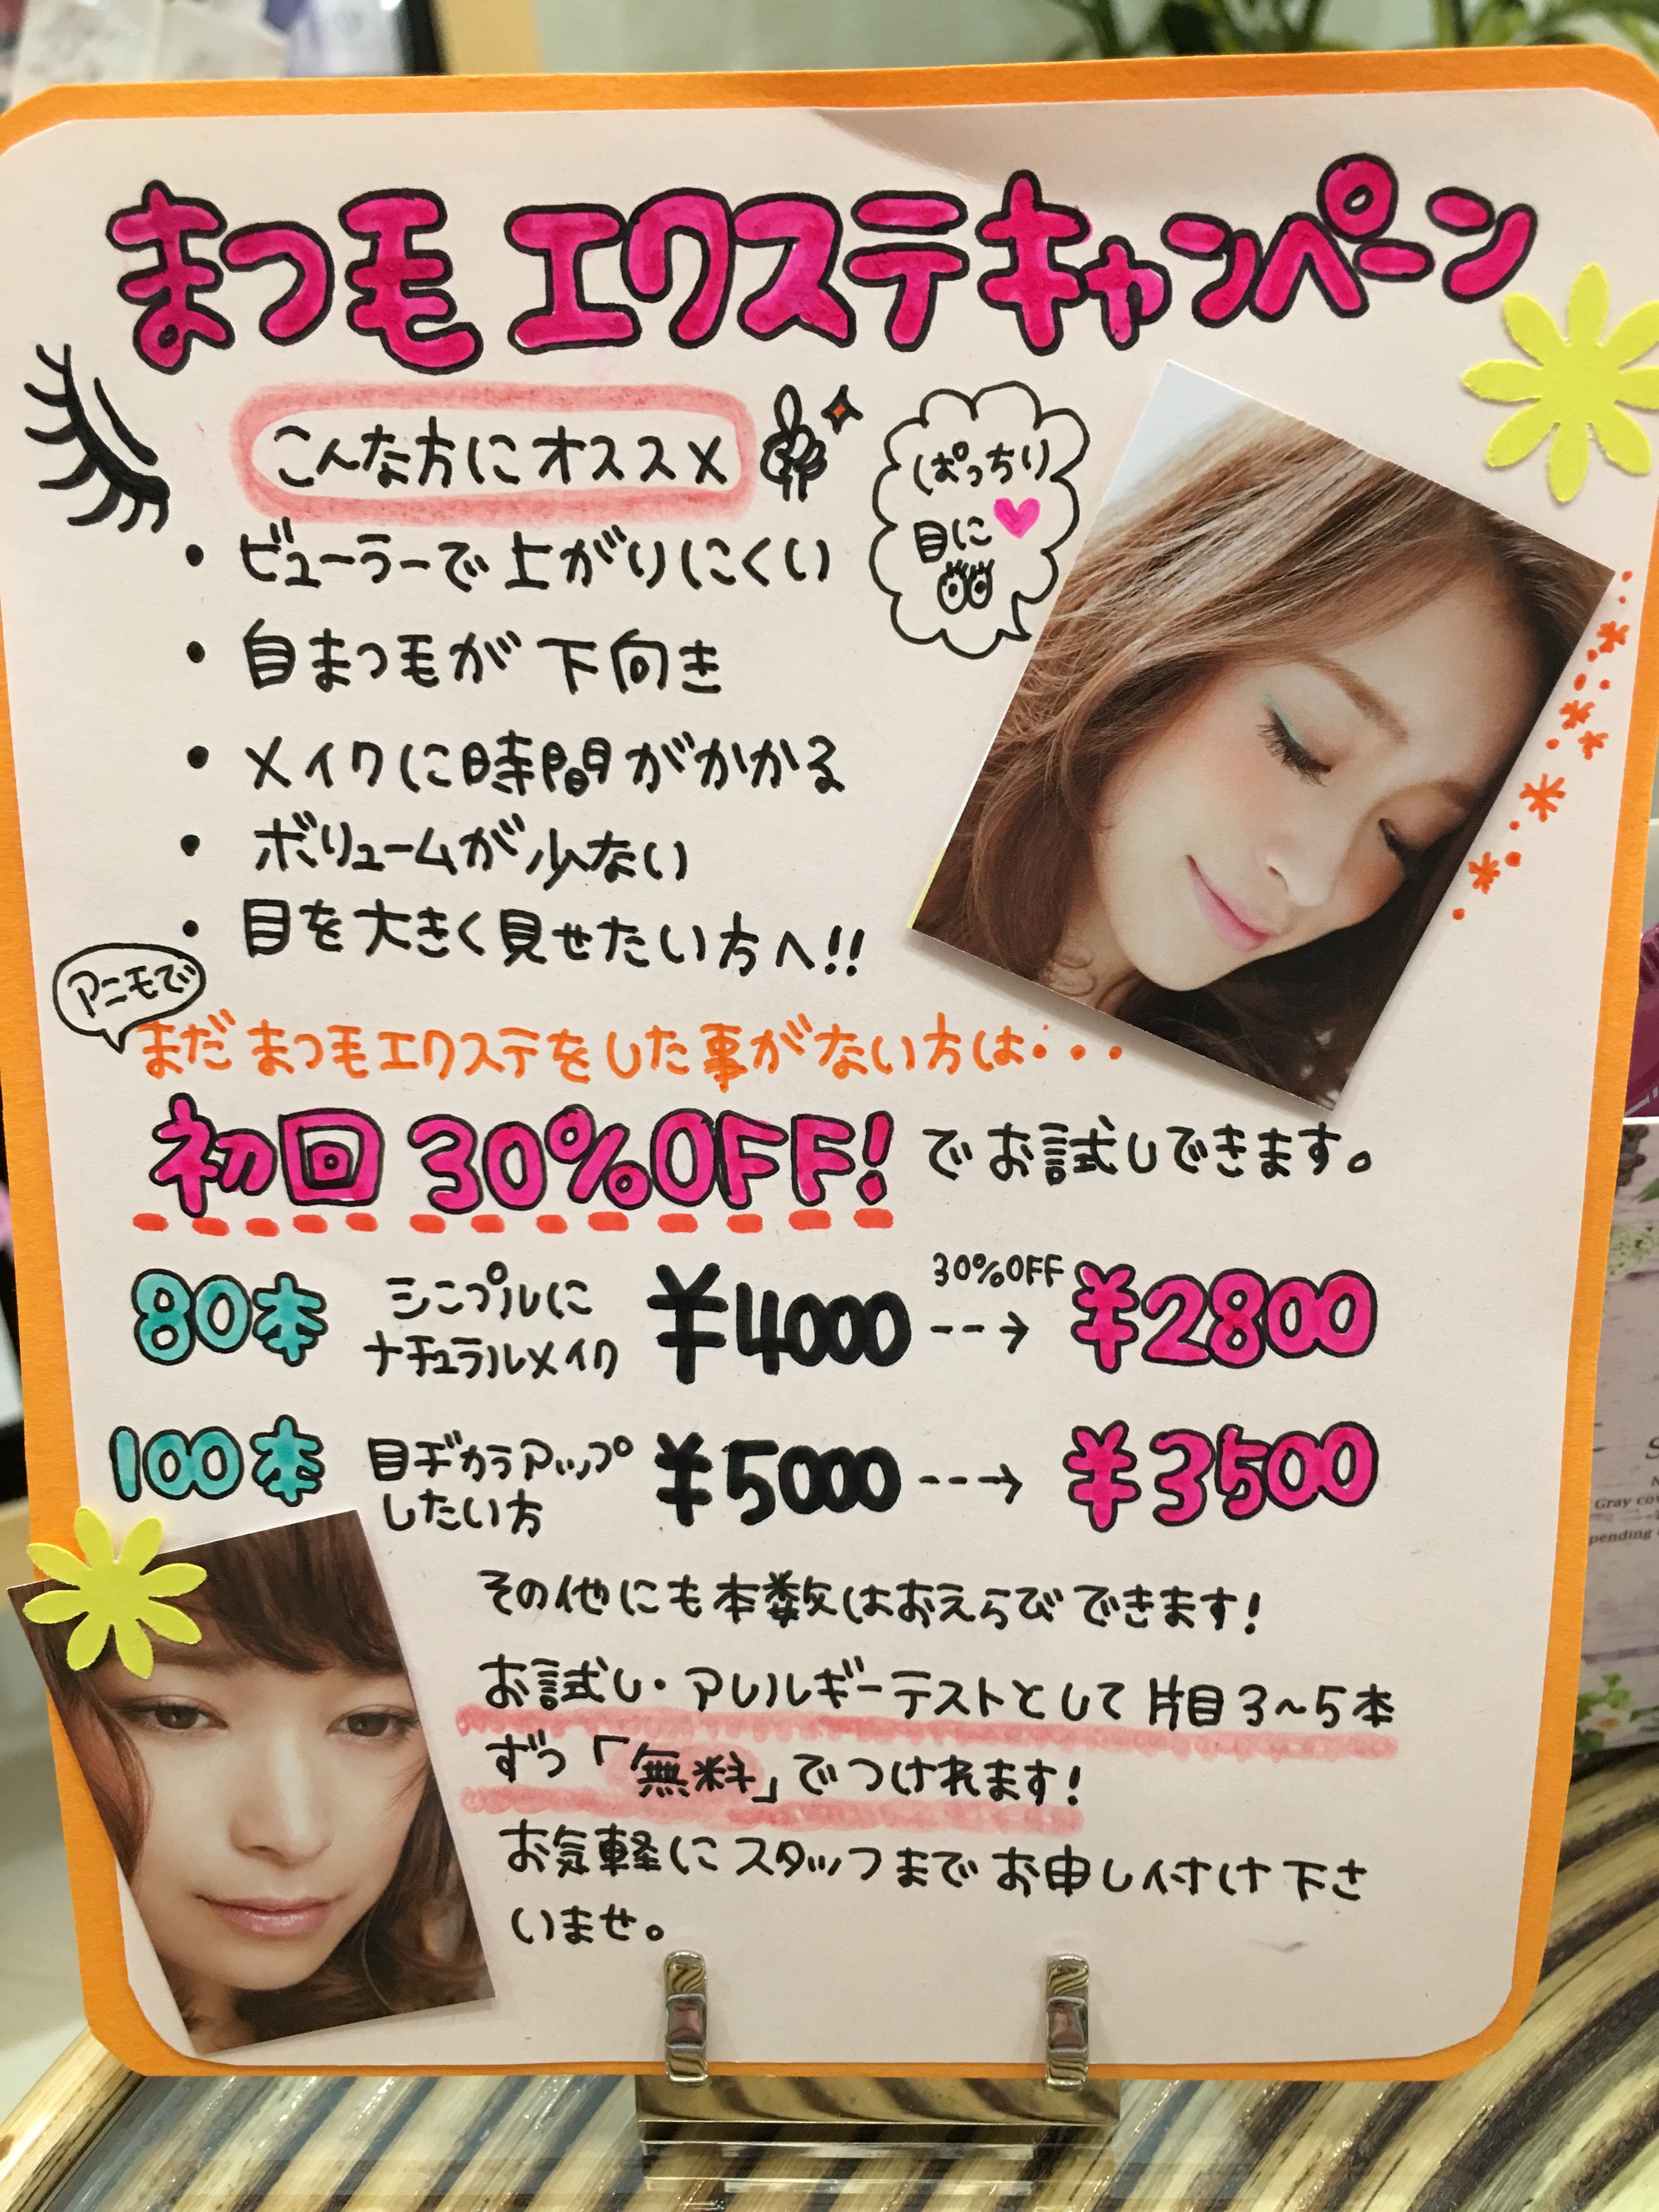 まつ毛エクステキャンペーン
こんな方にオススメ
ぱっちり
目に
・ビューラーで上がりにくい
・自まつ毛が下向き
・メイクに時間がかかる
・ボリュームが少ない
・目を大きく見せたい方へ!!
アニモで
まだまつ毛エクステをした事がない方は・・・
初回30%OFF!でお試しできます。
80本 シンプルに
ナチュラルメイク ¥4000 30%OFF --→ ¥2800
100本 目ヂカラアップ
したい方 ¥5000 --→ ¥3500
その他にも本数はおえらびできます!
お試し・アレルギーテストとして片目3~5本
ずつ「無料」でつけれます!
お気軽にスタッフまでお申し付け下さ
いませ。
Gray
pending